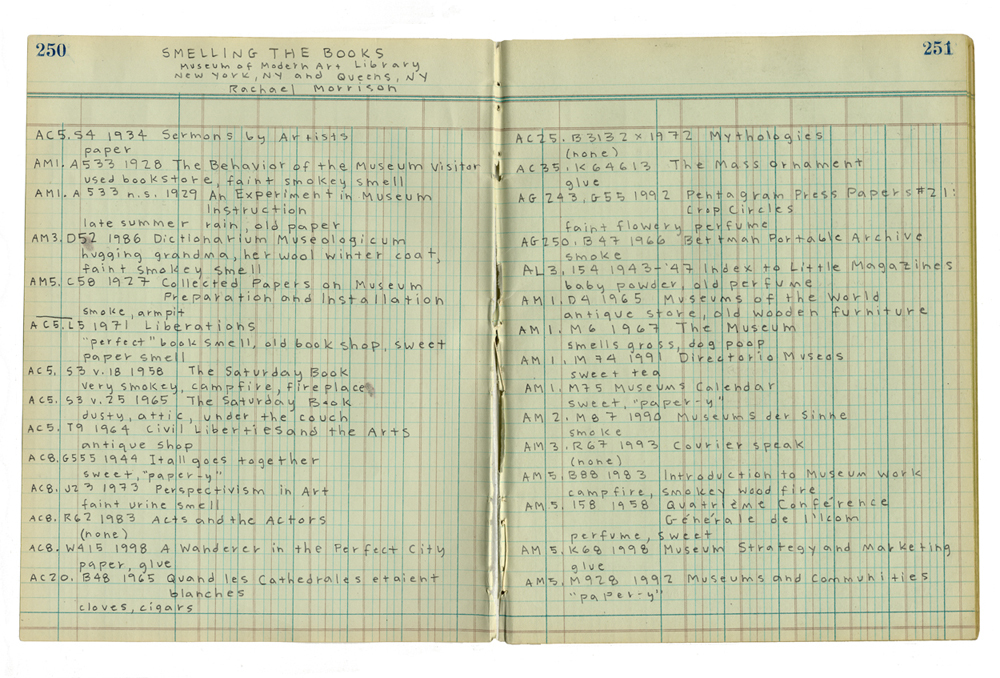 250
SMELLING THE BOOKS
Museum of Modern Art Library
New York, NY and Queens, NY
Rachael Morrison
AC5. S4 1934 Sermons by Artists
paper
AM1. A533 1928 The Behavior of the Museum Visitor
used bookstore, faint smokey smell
AM1. A533 n.s. 1929 An Experiment in Museum
Instruction
late summer rain, old paper
AM3. D52 1986 Dictionarium Museologicum
hugging grandma, her wool winter coat,
faint smokey smell
AM5. C58 1927 Collected Papers on Museum
Preparation and Installation
smoke, armpit
AC5. L5 1971 Liberations
"perfect" book smell, old book shop, sweet
paper smell
AC5. S3 v.18 1958 The Saturday Book
very smokey, campfire, fireplace
AC5. S3 v.25 1965 The Saturday Book
dusty, attic, under the couch
AC5. T9 1964 Civil Liberties and the Arts
antique shop
AC8. G555 1944 It all goes together
sweet, "paper-y"
AC8. J23 1973 Perspectivism in Art
faint urine smell
AC8. R62 1983 Acts and the Actors
(none)
AC8. W415 1998 A Wanderer in the Perfect City
paper, glue
AC20. B48 1965 Quand les Cathedrales etaient
blanches
cloves, cigars
251
AC25. B3132x 1972 Mythologies
(none)
AC35. K64613 The Mass Ornament
glue
AG243. G55 1992 Pentagram Press Papers #21:
Crop Circles
faint flowery perfume
AG250. B47 1966 Bettman Portable Archive
smoke
AL3. 154 1943-'47 Index to Little Magazines
baby powder, old perfume
AM1. D4 1965 Museums of the World
antique store, old wooden furniture
AM1. M6 1967 The Museum
smells gross, dog poop
AM1. M74 1991 Directorio Museos
sweet tea
AM1. M75 Museums Calendar
sweet, "paper-y"
AM2. M87 1990 Museums der Sinne
smoke
AM3. R67 1993 Courier speak
(none)
AM5. B88 1983 Introduction to Museum Work
campfire, smokey wood fire
AM5. I58 1958 Quatrième Conférence
Générale de l'Icom
perfume, sweet
AM5. K68 1998 Museum Strategy and Marketing
glue
AM5. M928 1992 Museums and Communities
"paper-y"